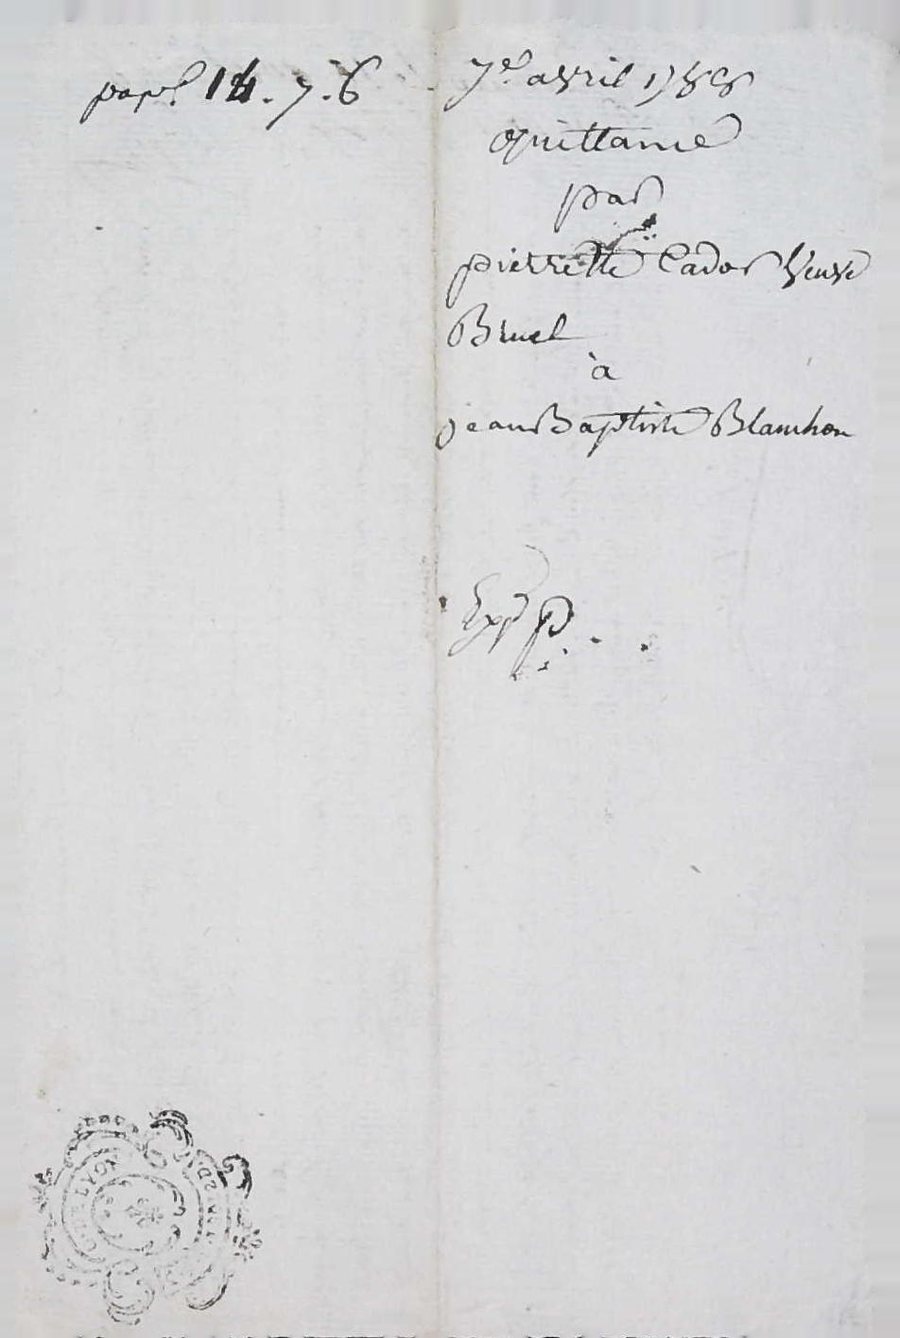 pap.^l 14. 7. 6
7^e. avril 1788
quittance
par
pierrette Cador Veuve
Bruel
à
jean Baptiste Blanchon
Exp^é p
LYON